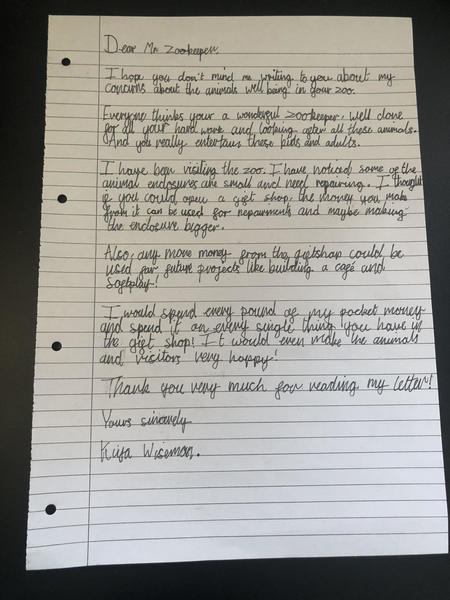 Dear Mr Zookeeper,
I hope you don't mind me writing to you about my
concerns about the animals well being in your zoo.
Everyone thinks your a wonderful zookeeper, well done
for all your hard work and looking after all these animals.
And you really entertain these kids and adults.
I have been visiting the zoo. I have noticed some of the
animal enclosures are small and need repairing. I thought
if you could open a gift shop, the money you make
from it can be used for repairments and maybe making
the enclosure bigger.
Also, any more money from the giftshop could be
used for future projects like building a café and
softplay!
I would spend every pound of my pocket money
and spend it on every single thing you have in
the gift shop! It would even make the animals
and visitors very happy!
Thank you very much for reading my letter!
Yours sincerely
Wiseman.